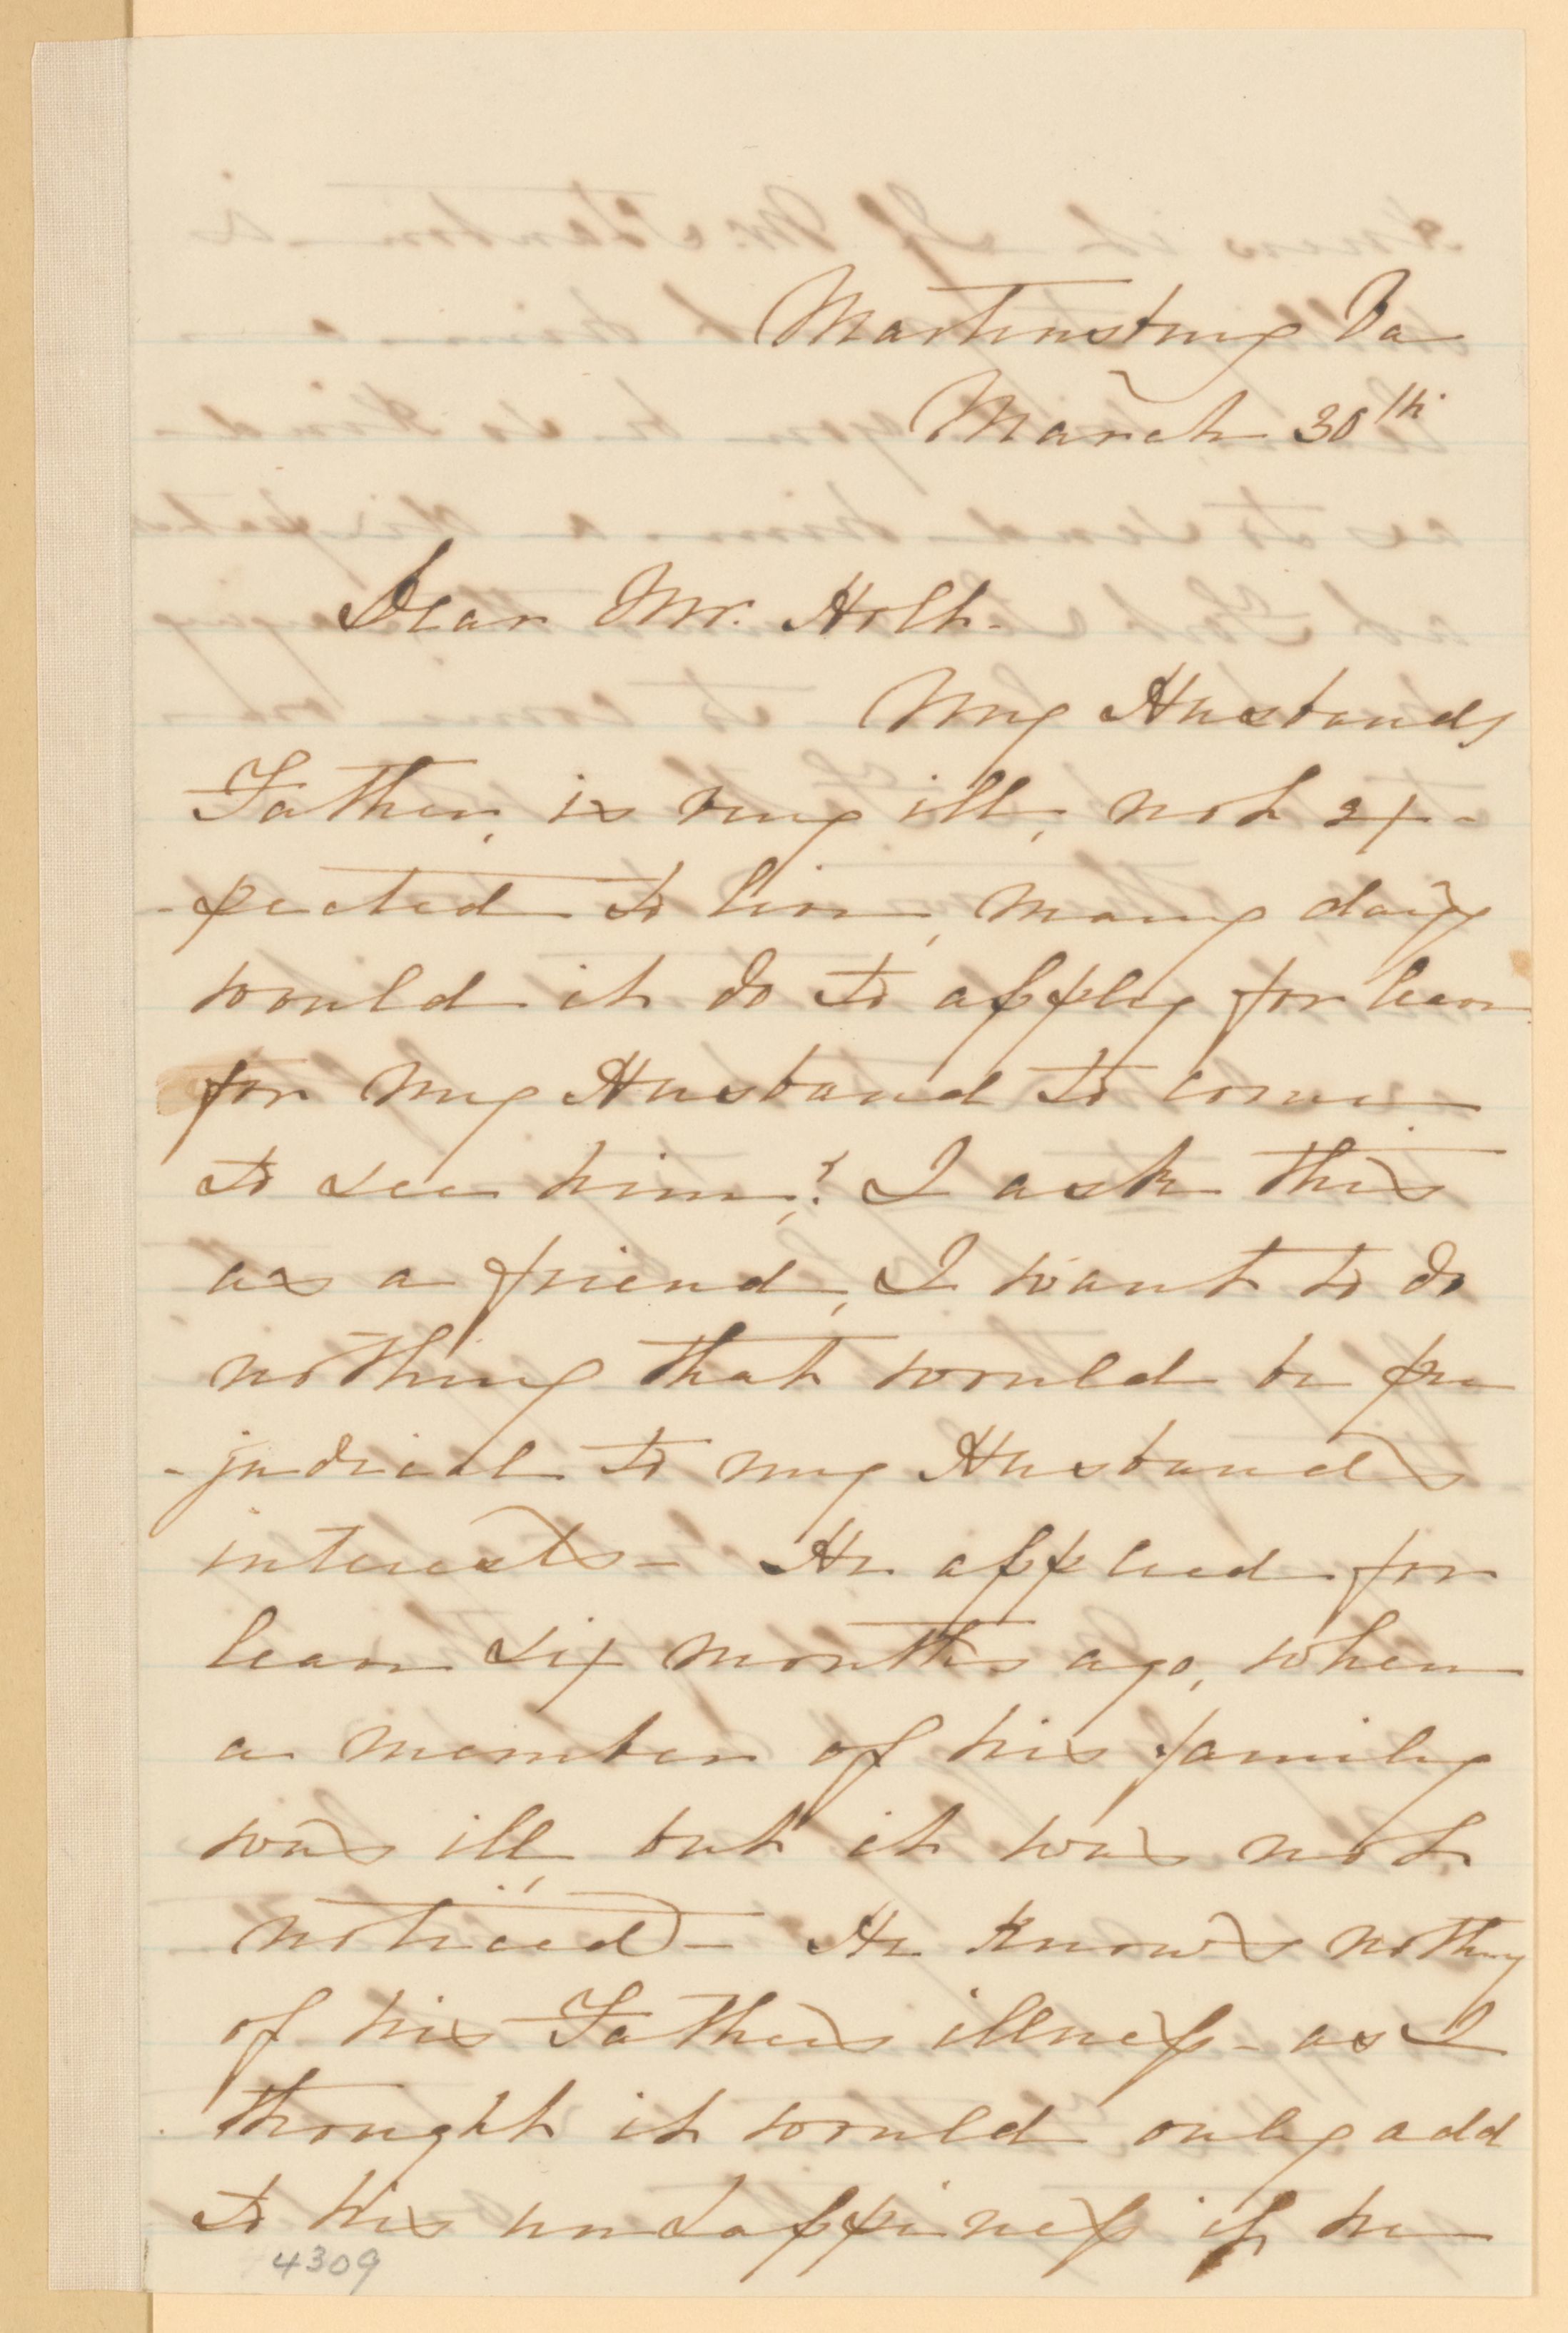 Martinsburg Va
March 30th
Dear Mr. Holt.
My Husbands
Father, is very ill, not ex-
-pected to live, many days
would it do to apply for leave
for my Husband to come
to see him,? I ask this
as a friend, I want to do
nothing that would be pre
-judicial to my Husbands
interests- He applied for
leave six months ago, when
a member of his family
was ill, but it was not
noticed- He knows nothing
of his Fathers illness- as I
thought it would only add
to his unhappiness if he
4309